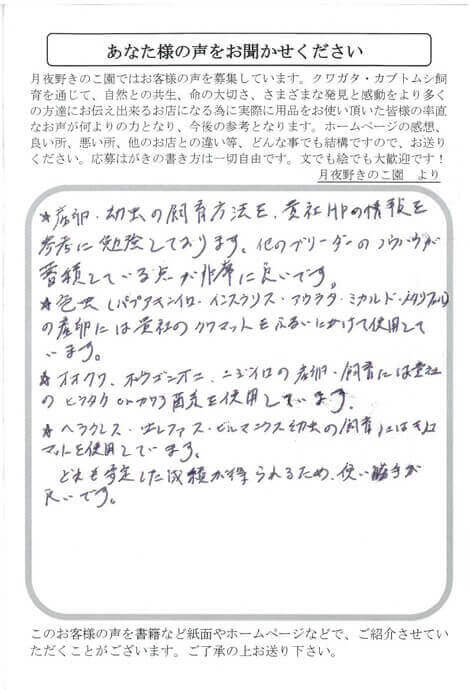 あなた様の声をお聞かせください
月夜野きのこ園ではお客様の声を募集しています。クワガタ・カブトムシ飼
育を通じて、自然との共生、命の大切さ、さまざまな発見と感動をより多く
の方達にお伝え出来るお店になる為に実際に用品をお使い頂いた皆様の率直
なお声が何よりの力となり、今後の参考となります。ホームページの感想、
良い所、悪い所、他のお店との違い等、どんな事でも結構ですので、お送り
ください。応募はがきの書き方は一切自由です。文でも絵でも大歓迎です！
月夜野きのこ園　より
★産卵・幼虫の飼育方法を、貴社HPの情報を
参考に勉強しております。他のブリーダーのノウハウが
蓄積している点が非常に良いです。
★色虫(パプアキンイロ・インスラリス・
の産卵には貴社のクワマットをふるいにかけて使用して
います。
★オオクワ、オウゴンオニ、ニジイロの産卵・飼育には貴社
のヒラタケorカワラ菌糸を使用しています。
★ヘラクレス・エレファス・ビルマニクス幼虫の飼育にはきのこ
マットを使用しています。
どれも安定した成績が得られるため、使い勝手が
良いです。
このお客様の声を書籍など紙面やホームページなどで、ご紹介させてい
ただくことがございます。ご了承の上お送り下さい。